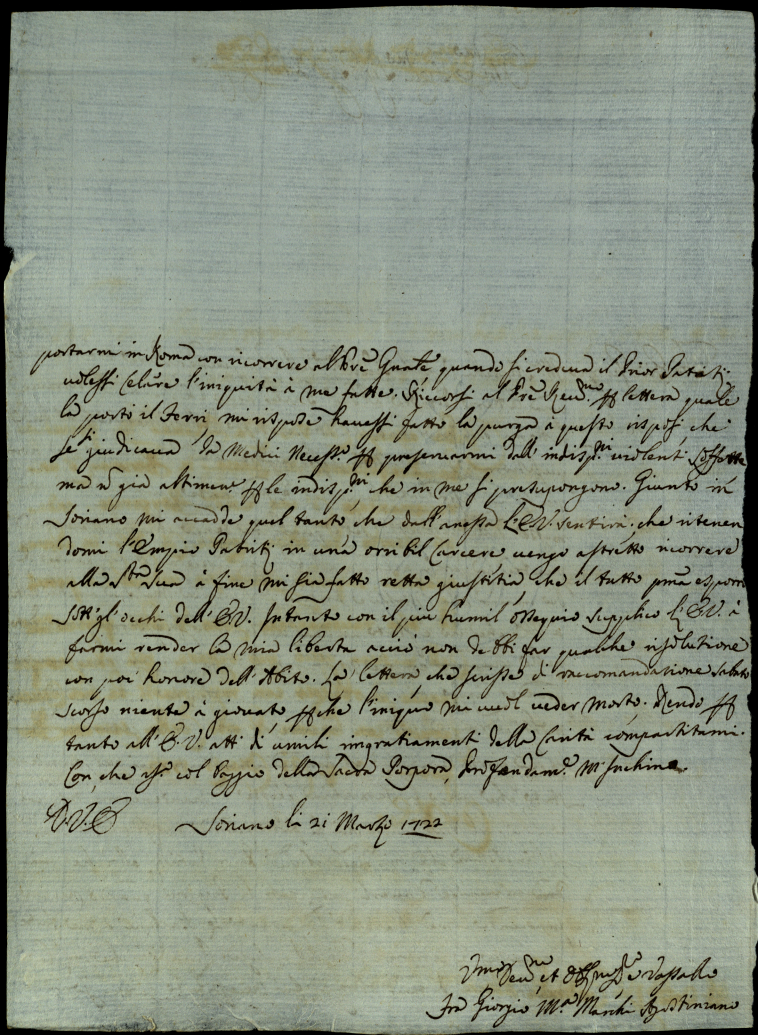 portarmi in Roma con ricorrere al Prē Gn̄ale quando si credeva il Prior
volessi celare l'iniquità à me fatte. Riccorsi al Prē Rev.mo p lettera quale
la portò il Ferri mi rispose havessi fatto la purga à questo risposi che
se giudicava da Medici necess.o p preservarmi dall'indisp.ni violenti
ma nō già altimen.e p le indisp.ni che in me si presupongono. Giunto in
Soriano mi accadde quel tanto, che dall'anessa l'E.V. sentirà: che ritenen
domi l'Empio in una orribil Carcere vengo astretto ricorrere
alla S.tà Sua à fine mi sia fatto retta giustitia, che il tutto pmā esporre
sott'gl'occhi dell'E.V. Intanto con il più humil ossequio supplico l'E.V. à
farmi render la mia libertà acciò non debbi far qualche risolutione
con poc' honore dell'Abito. La lettera che scrisse di raccomandatione sabato
scorso niente à giovato p che l'iniquo mi vuol veder morto. Rendo p
tanto all'E.V. atti di umili ringratiamenti della Carità compartitami.
Con che col baggio della Sacra Porpora, profondam.e m'inchino.
D.V.E. Soriano li 21 Marzo 1722
Umo Dev.mo et Obb.mo Vassallo
Frà Giorgio M.a Marchi Agostiniano